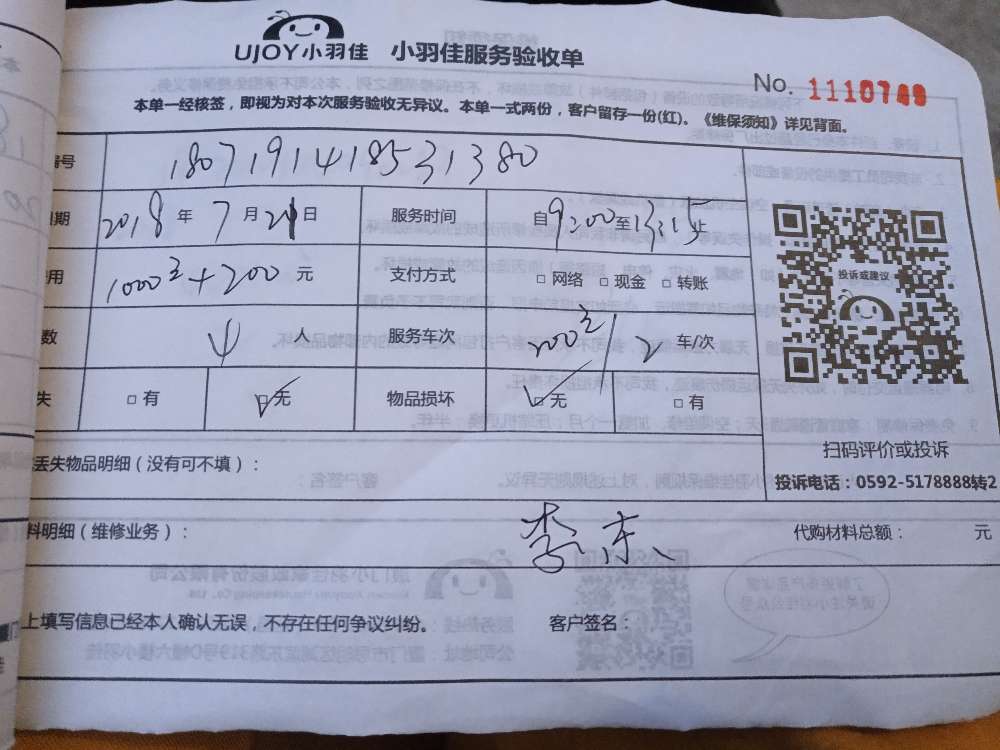 UJOY小羽佳 小羽佳服务验收单
No. 1110749
本单一经核签，即视为对本次服务验收无异议。本单一式两份，客户留存一份(红)。《维保须知》详见背面。
编号 1807191418531380
期 2018 年 7 月 21 日 服务时间 自9:00至13:15止
用 1000²+200 元 支付方式 □ 网络 □ 现金 □ 转账
数 4 人 服务车次 200²/2 车/次
失 □ 有 ☑无 物品损坏 ☑无 □ 有
投诉或建议
扫码评价或投诉
投诉电话：0592-5178888转2
丢失物品明细（没有可不填）：
料明细（维修业务）： 代购材料总额： 元
李
上填写信息已经本人确认无误，不存在任何争议纠纷。 客户签名：